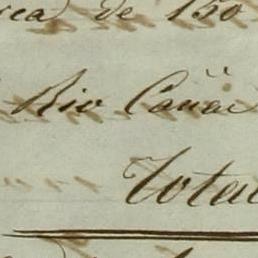 rea de 150
Rio Cauac
Total